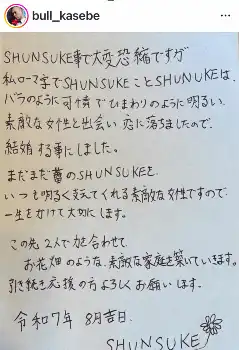 bull_kasebe
SHUNSUKE事で大変恐縮ですが
私ローマ字でSHUNSUKEことSHUNUKEは、
バラのように可憐でひまわりのように明るい、
素敵な女性と出会い 恋に落ちましたので、
結婚する事にしました。
まだまだ蕾のSHUNSUKEを、
いつも明るく支えてくれる素敵な女性ですので
一生をかけて大切にします。
この先2人で力を合わせて
お花畑のような、素敵な家庭を築いていきます。
引き続き応援の方よろしくお願いします。
令和7年 8月吉日.
SHUNSUKE